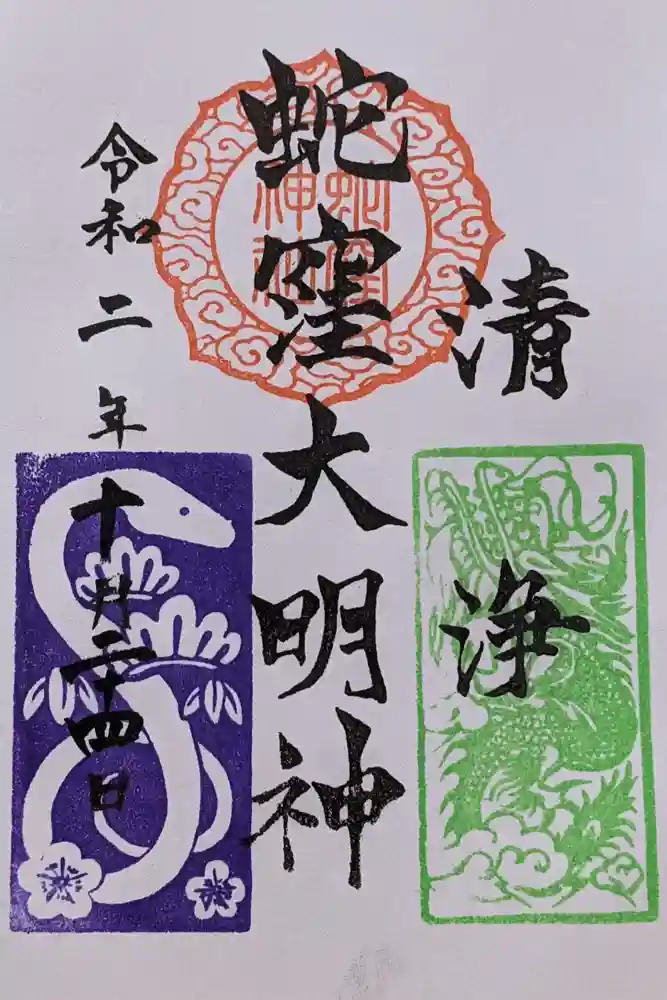 清浄
蛇窪大明神
蛇窪
神社
令和二年十月二十四日